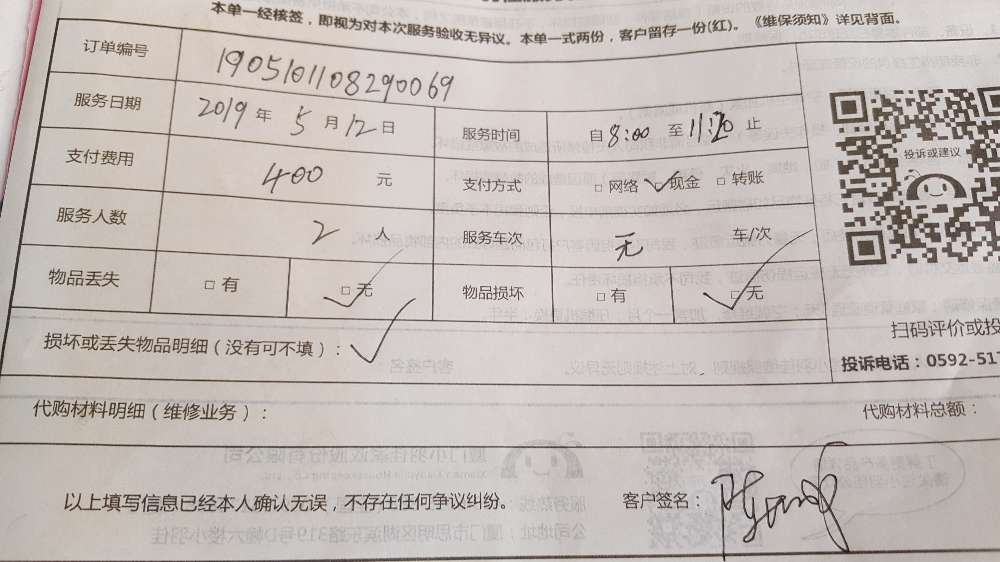 本单一经核签，即视为对本次服务验收无异议。本单一式两份，客户留存一份(红)。《维保须知》详见背面。
订单编号 190510110829​0069
服务日期 2019 年 5 月 12 日 服务时间 自 8:00 至 11:20 止
支付费用 400 元 支付方式 □ 网络 ☑ 现金 □ 转账
服务人数 2 人 服务车次 无 车/次
物品丢失 □ 有 ☑ 无 物品损坏 □ 有 ☑ 无
损坏或丢失物品明细（没有可不填）：✓
代购材料明细（维修业务）：
代购材料总额：
以上填写信息已经本人确认无误，不存在任何争议纠纷。
客户签名：
投诉或建议
扫码评价或投
投诉电话：0592-517